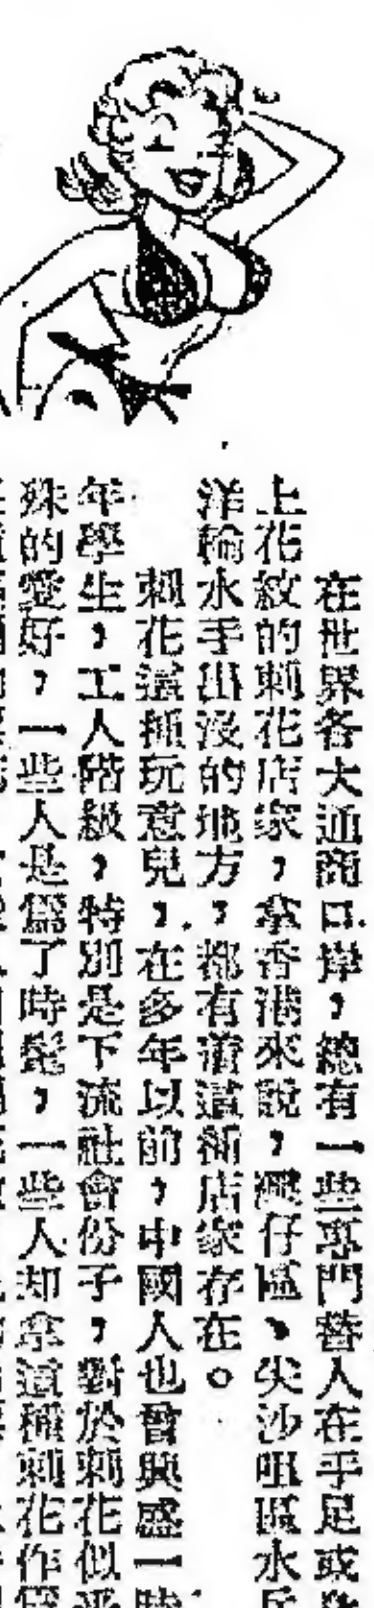 在世界各大通商口岸，總有一些專門替人在手足或
上花紋的刺花店家，拿香港來說，灣仔區、尖沙咀區水兵
洋輪水手出沒的地方，都有着這種店家存在。
刺花這種玩意兒，在多年以前，中國人也曾興盛一時
年學生，工人階級，特別是下流社會份子，對於刺花似乎
殊的愛好，一些人是爲了時髦，一些人却拿這種刺花作爲